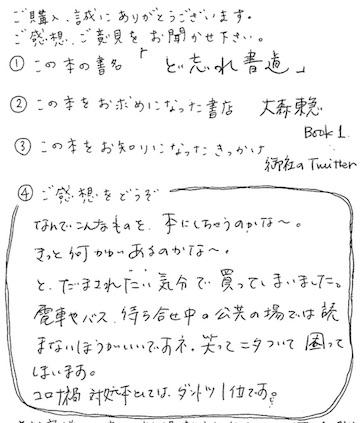 ご購入、誠にありがとうございます。
ご感想、ご意見をお聞かせ下さい。
① この本の書名「ど忘れ書道」
② この本をお求めになった書店 大森東急
Book 1
③ この本をお知りになったきっかけ
御社のTwitter
④ ご感想をどうぞ
なんでこんなものを、本にしちゃうのかな〜。
きっと何かがあるのかな〜。
と、だまされたい気分で買ってしまいました。
電車やバス、待ち合せ中の公共の場では読
まないほうがいいですネ。笑ってニタついて困って
しまいます。
コロナ禍 対処本としては、ダントツ1位です。